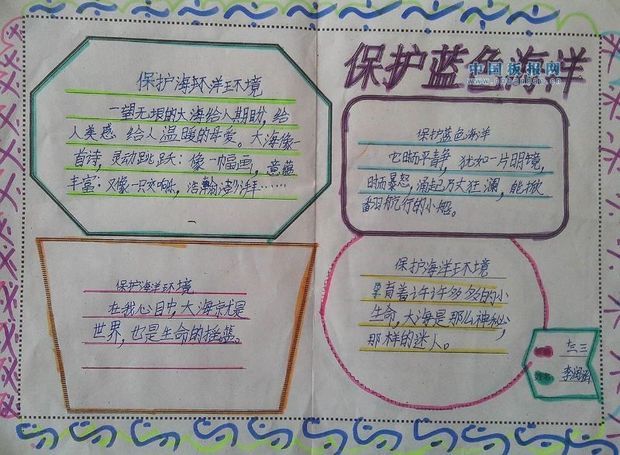 保护蓝色海洋
中国板报网
保护海洋环境
一望无垠的大海给人期盼,给
人美感,给人温暖的母爱。大海像一
首诗,灵动跳跃:像一幅画,意蕴
丰富;又像一只交响,浩瀚澎湃……
保护蓝色海洋
它时而平静,犹如一片明镜,
时而暴怒,涌起万丈狂澜,能掀
翻航行的小船。
保护海洋环境
在我心目中,大海就是
世界,也是生命的摇篮。
保护海洋环境
孕育着许许多多的小
生命,大海是那么神秘,
那样的迷人。
五三